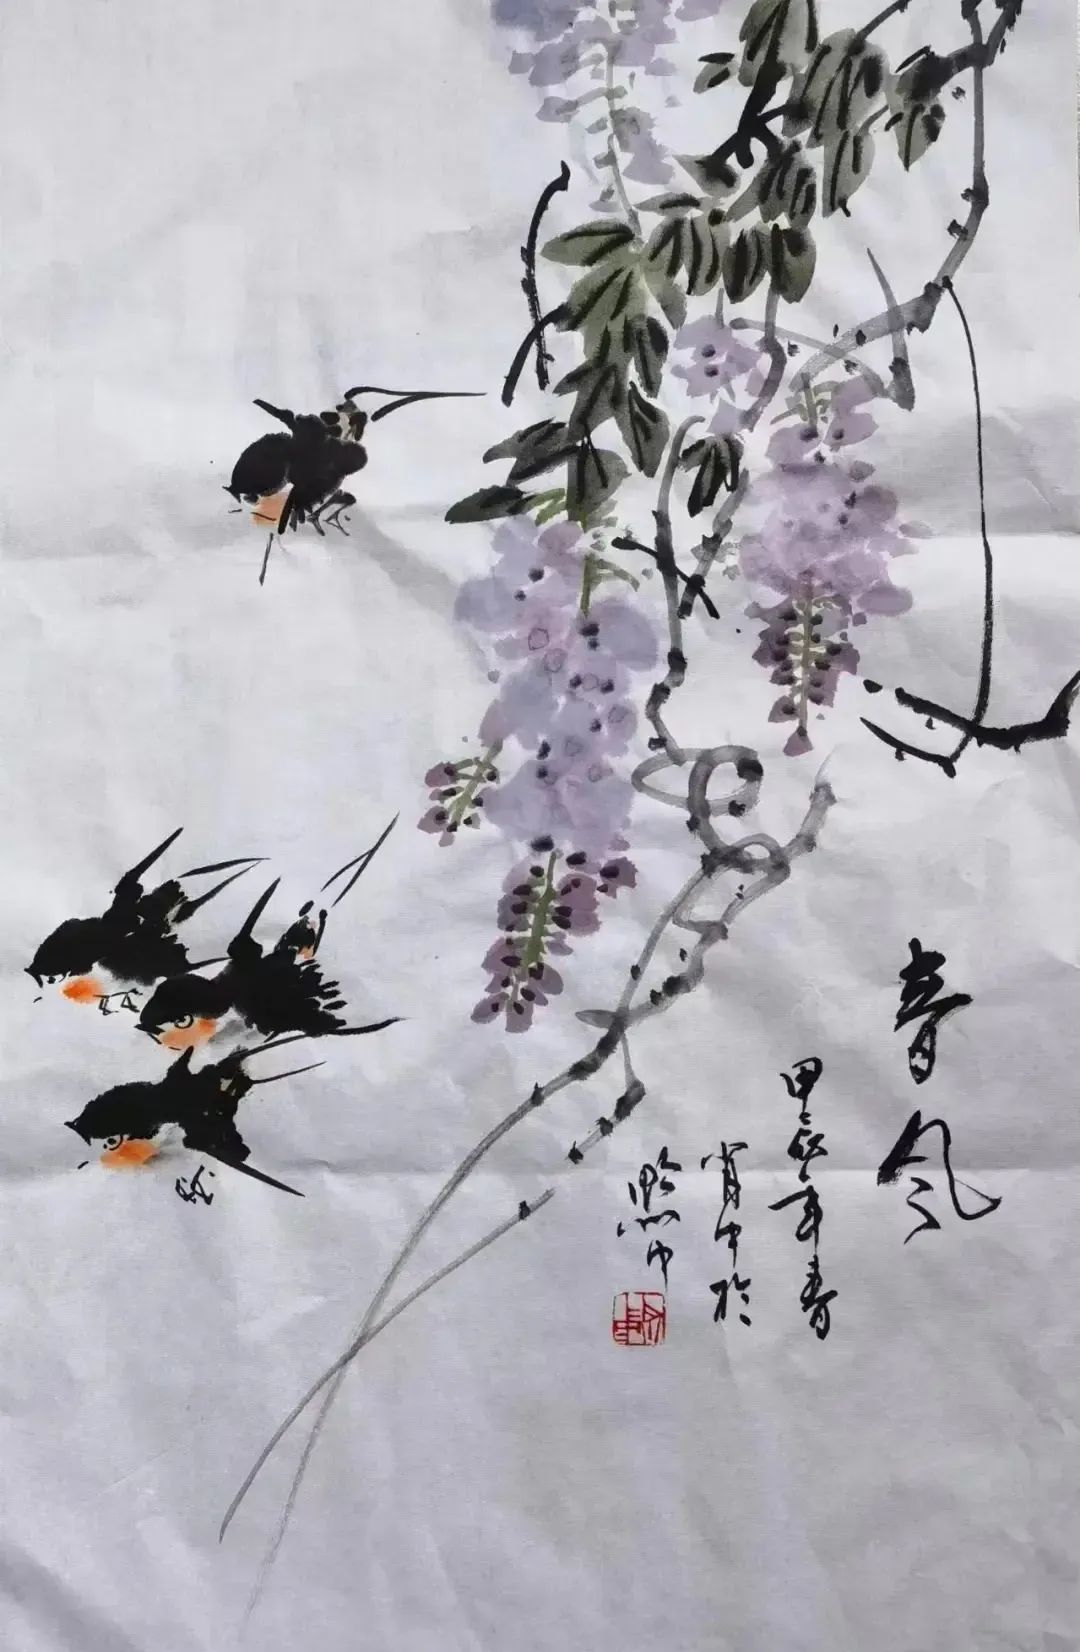 春风
甲辰年春
肖中於
黔中